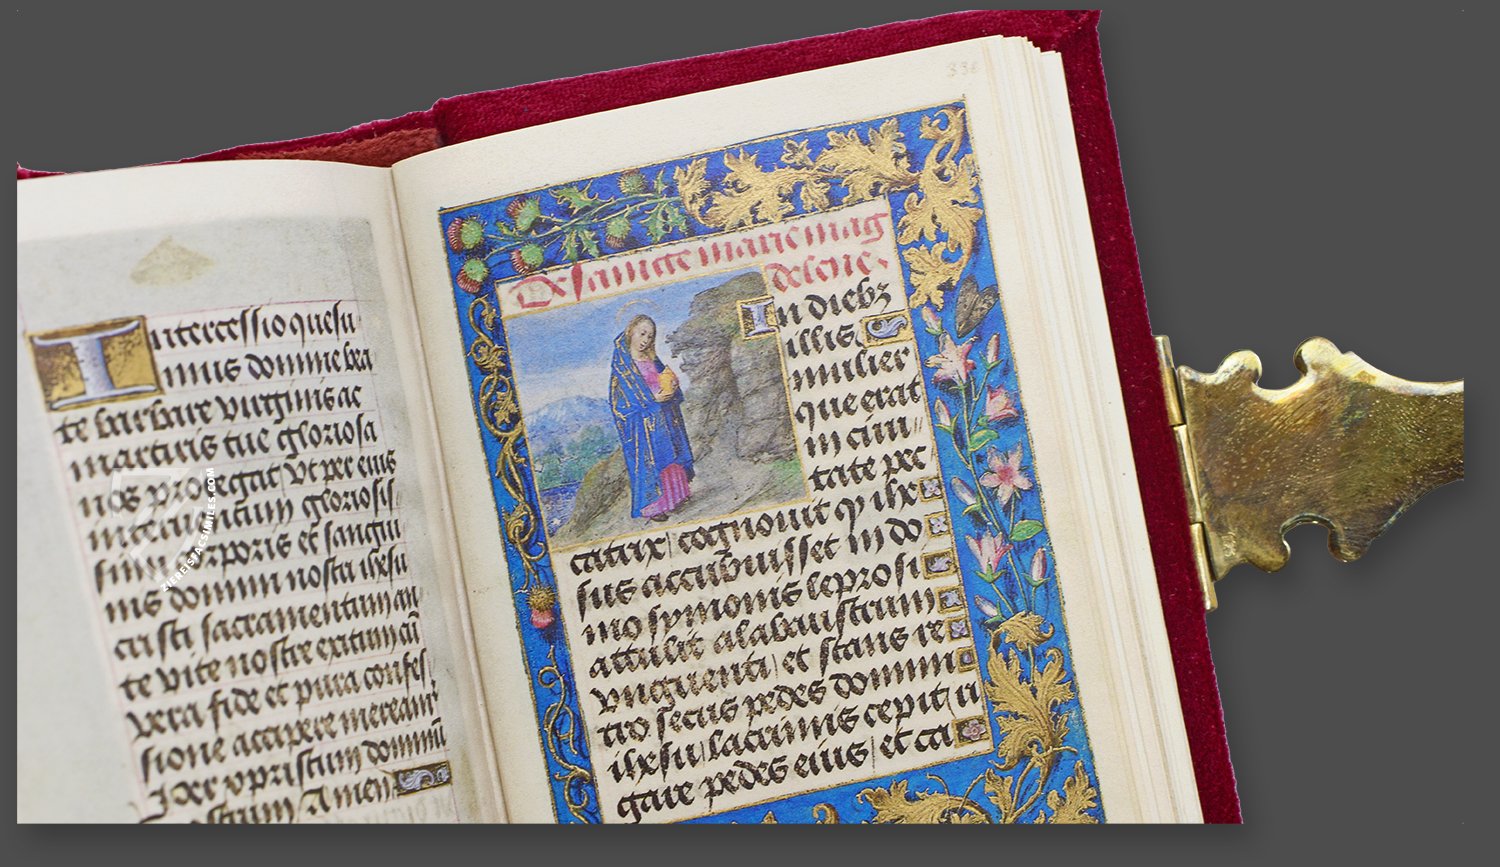 Intercessio quesu
mus domine bea
te barbare virginis ac
martiris tue gloriosa
nos protegat / Vt per eius
interuentum gloriosis
simi corporis et sangui
nis domini nostri ihesu
cristi sacramentum an
te vite nostre exitum cū
vera fide et pura confes
sione accipere mereamr
Per xpristum dominū
nostrum Amen
336
De sancte marie mag
delene.
In diebȝ
illis
mulier
que erat
in ciui
tate pec
catrix / cognouit ꝙ ihs
sus accubuisset in do
mo symonis leprosi
attulit alabaustrum
vnguenti / et stans re
tro secus pedes domini
ihesu / lacrimis cepit ri
gare pedes eius / et ca
ZIEREISFACSIMILES.COM